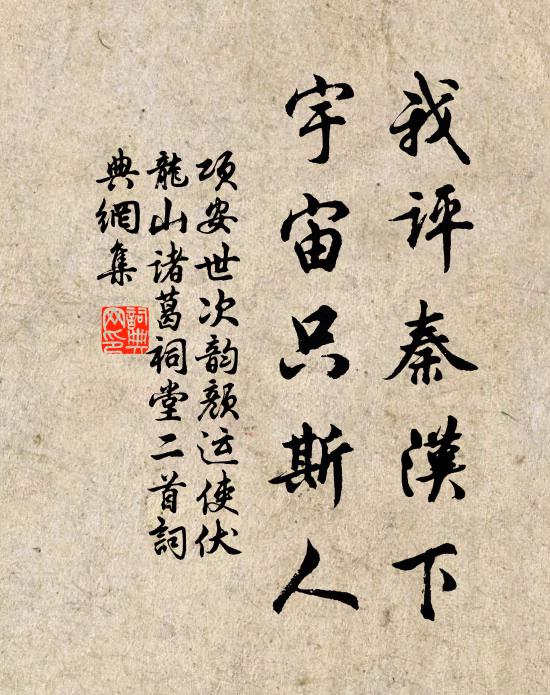 我评秦漢下
宇宙只斯人
项安世次韵颜运使伏
龍山诸葛祠堂二首詞
典網集
詞典網印